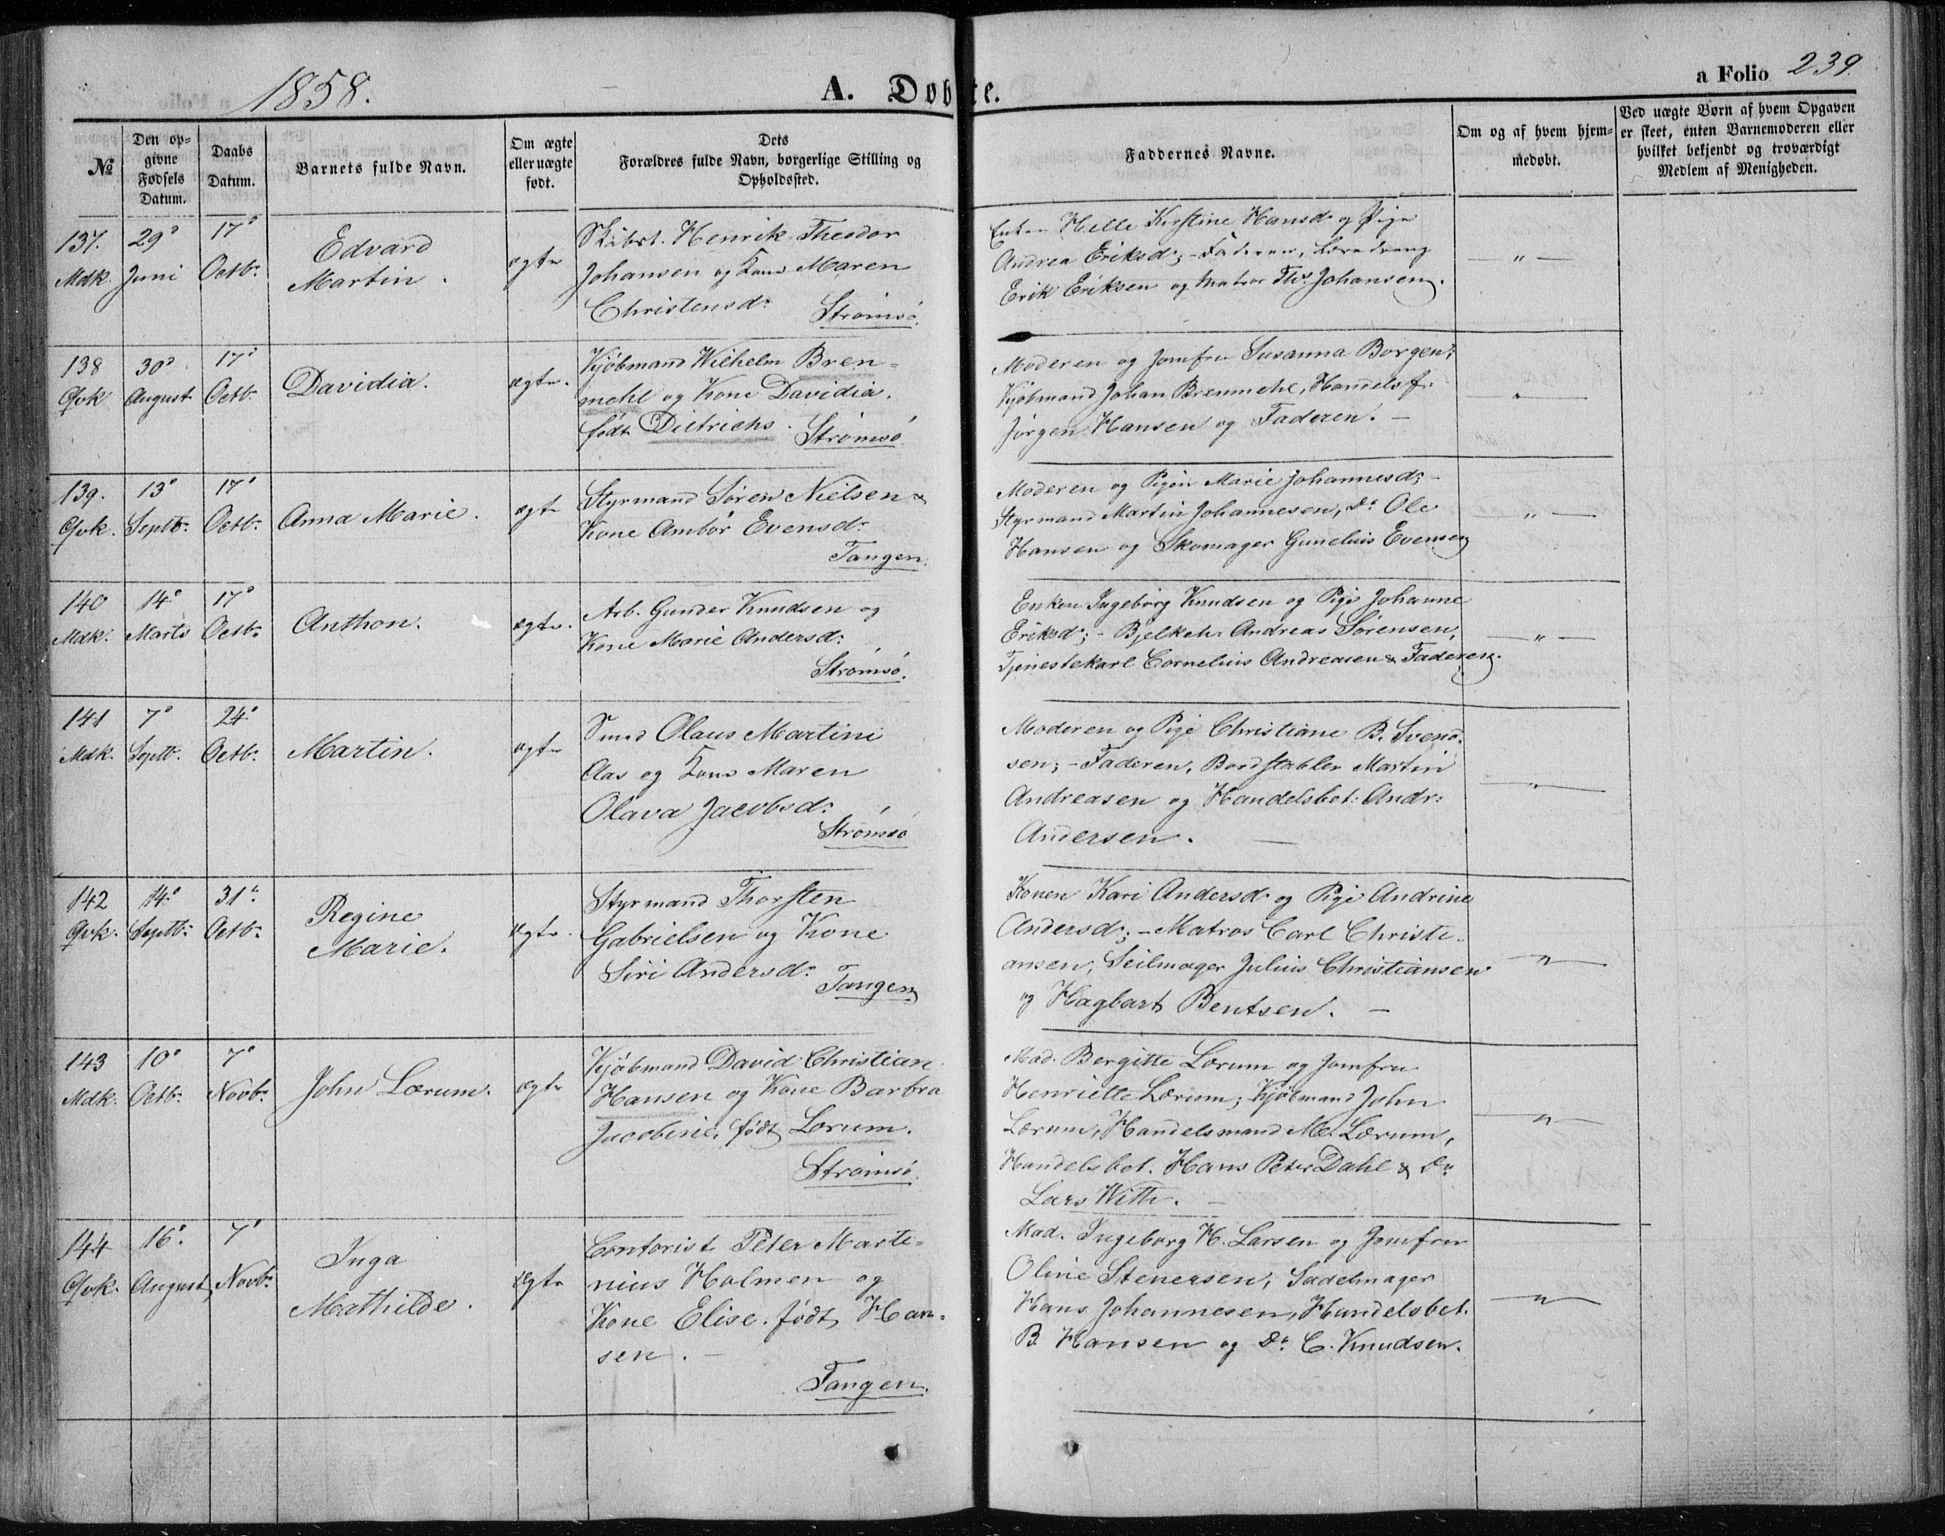 1858.
A. Døbte.
a Folio 239.
№
Den op-
givne
Fødsels
Datum.
Daabs
Datum.
Barnets fulde Navn.
Om ægte
eller uægte
født.
Dets
Forældres fulde Navn, borgerlige Stilling og
Opholdssted.
Faddernes Navne.
Om og af hvem hjem-
medøbt.
Ved uægte Børn af hvem Opgaven
er skeet, enten Barnemoderen eller
hvilket bekjendt og troværdigt
Medlem af Menigheden.
137.
Mdk.
29
Juni
17
Octb.
Edvard
Martin.
ægte
Skibst. Henrik Theodor
Johansen og Kone Maren
Christensd.
Strømsø.
Enken Helle Kirstine Hansd. og Pige
Andrea Eriksd; - Faderen,
Erik Eriksen og Matros Ths. Johansen.
— " —
138
Qvk
30
August
17
Octb.
Davidia.
ægte.
Kjøbmand Wilhelm Brem-
mehl og Kone Davidia.
født Dietrichs.
Strømsø.
Moderen og Jomfru Susanna Borgen;
Kjøbmand Johan Bremmehl, Handelsf.
Jørgen Hansen og Faderen. —
— " —
139.
Qvk.
13
Septb.
17
Octb.
Anna Marie.
ægte
Styrmand Søren Nielsen &
Kone Ambør Evensd.
Tangen.
Moderen og Pigen Marie Johannesd; -
Styrmand Martin Johannesen, Do. Ole
Hansen og Skomager Gunelius Evensen
— " —
140
Mdk.
14
Marts
17
Octb.
Anthon.
ægte.
Arb. Gunder Knudsen og
Kone Marie Andersd.
Strømsø.
Enken Ingeborg Knudsen og Pige Johanne
Eriksd; - Bjelkeh. Andreas Sørensen,
Tjenestekarl Cornelius Andreasen & Faderen.
— " —
141
Mdk.
7
Septb.
24
Octb.
Martin.
ægte
Smed Olaus Martini
Aas og Kone Maren
Olava Jacobsd.
Strømsø
Moderen og Pige Christiane B. Svend-
sen; - Faderen, Bordstabler Martin
Andreasen og Handelsbet: Andr:
Andersen. —
— " —
142
Qvk.
14
Septb.
31
Octb.
Regine
Marie.
ægte.
Styrmand Thorsten
Gabrielsen og Kone
Siri Andersd.
Tangen
Konen Kari Andersd. og Pige Andrine
Andersd; - Matros Carl Christi-
ansen, Seilmager Julius Christiansen
og Hagbart Bentsen. —
— " —
143
Mdk.
10
Octb.
7
Novb.
John Lærum.
ægte
Kjøbmand David Christian
Hansen og Kone Barbra
Jacobine, født Lærum.
Strømsø.
Mad. Bergitte Lærum og Jomfru
Henriette Lærum; Kjøbmand John
Lærum, Handelsmand M. Lærum,
Handelsbet. Hans Peter Dahl & Do.
Lars With. —
— " —
144
Qvk.
16
August
7
Novb.
Inga
Mathilde.
ægte
Contorist Peter Marti-
nius Holmen og
Kone Elise. født Han-
sen. —
Tangen.
Mad. Ingeborg H. Larsen og Jomfru
Oline Stenersen, Sadelmager
Hans Johannesen, Handelsbet.
B. Hansen og Do. C. Knudsen.
— " —